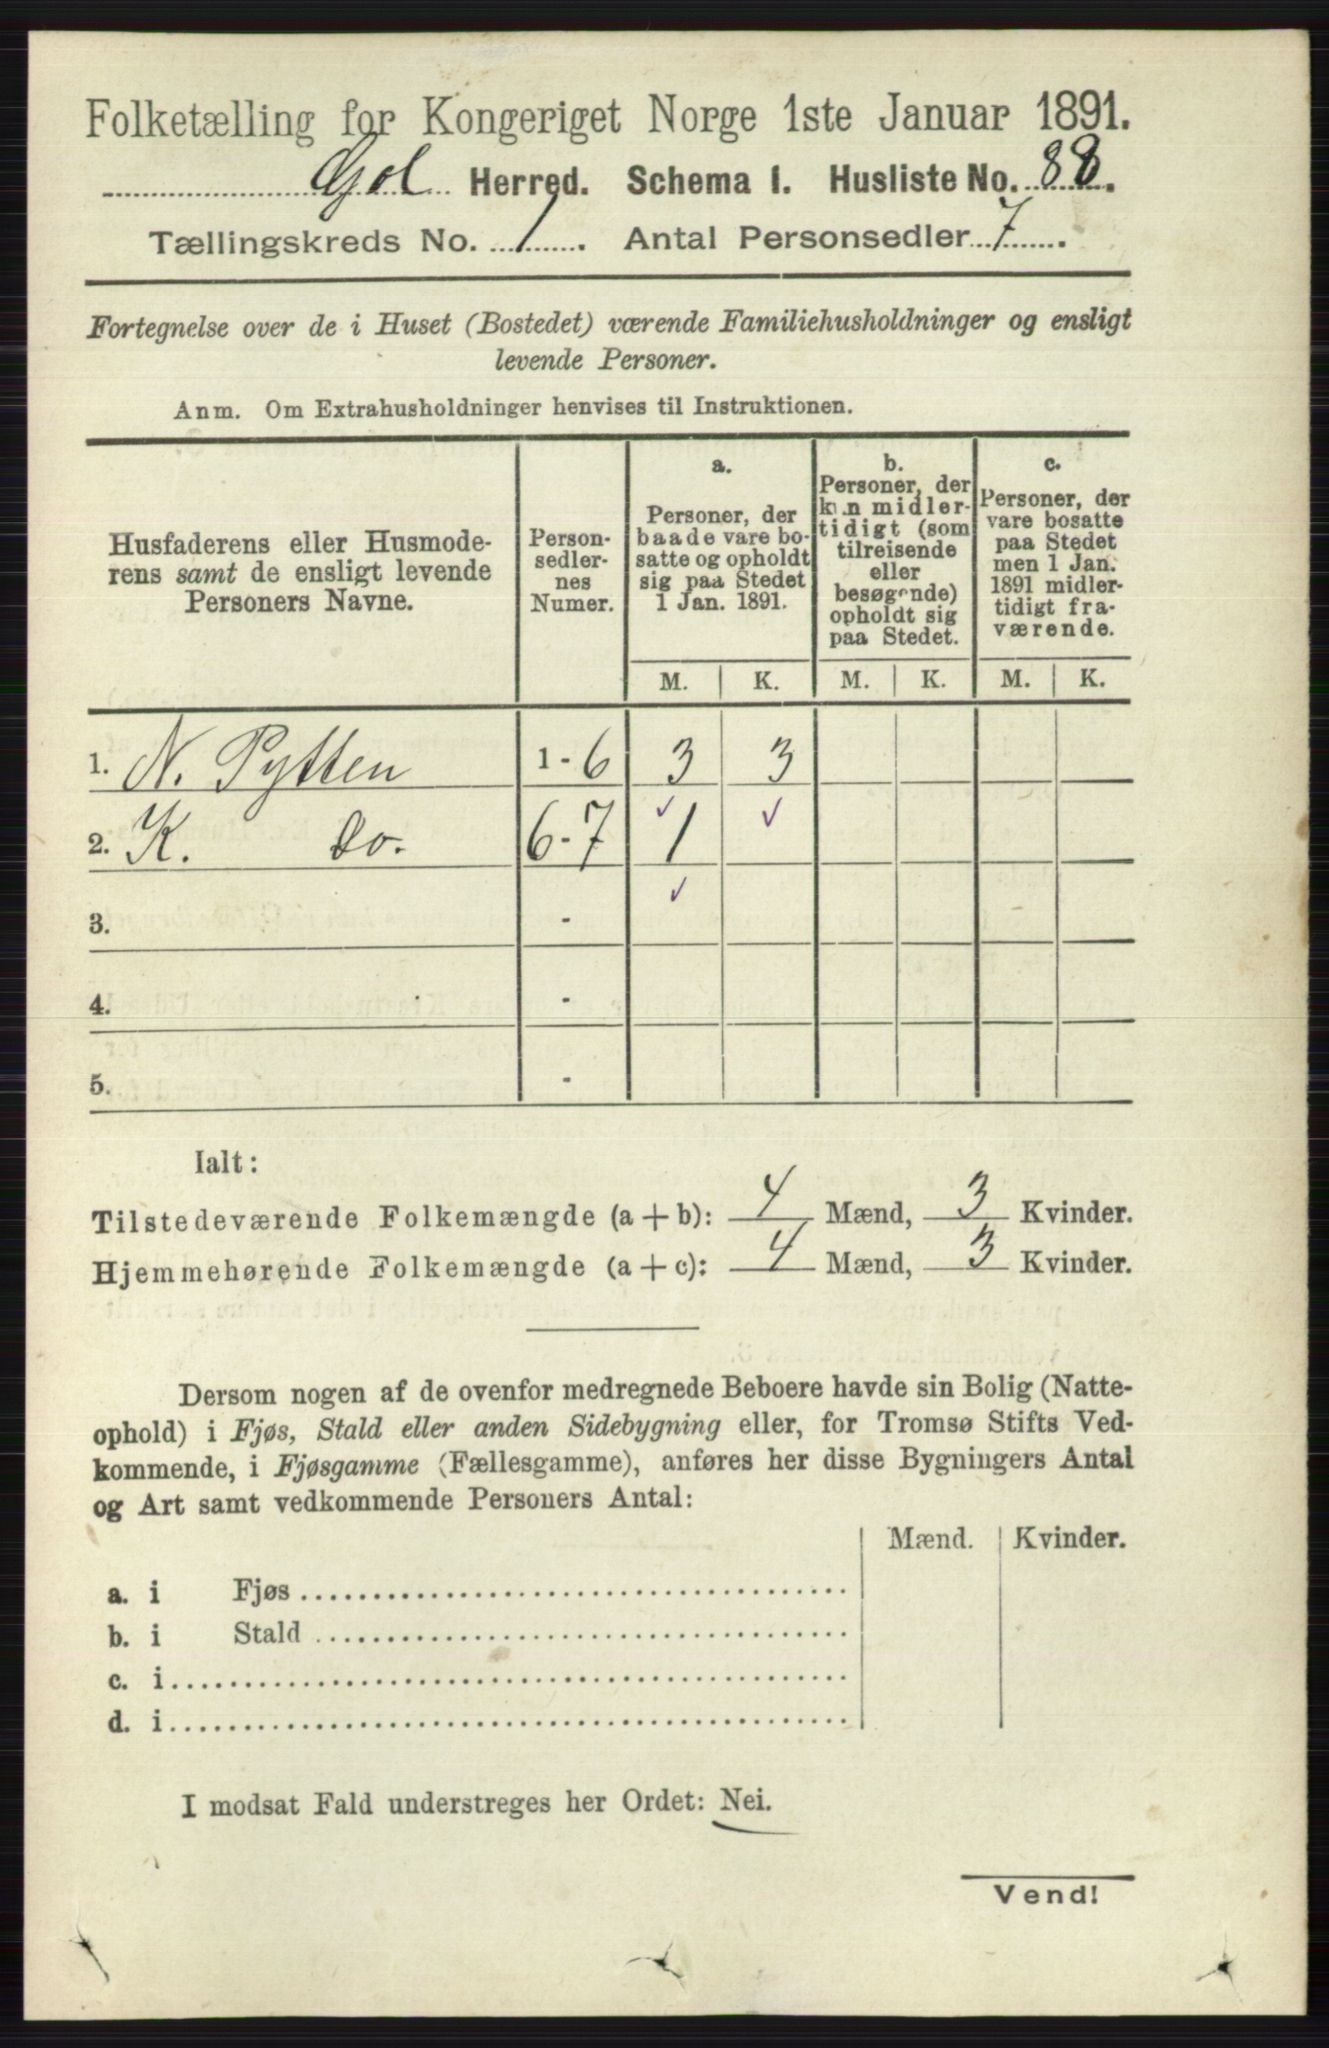 Folketælling for Kongeriget Norge 1ste Januar 1891.
Gol Herred. Schema 1. Husliste No. 88.
Tællingskreds No. 1. Antal Personsedler 7.
Fortegnelse over de i Huset (Bostedet) værende Familiehusholdninger og ensligt
levende Personer.
Anm. Om Extrahusholdninger henvises til Instruktionen.
Husfaderens eller Husmode-
rens samt de ensligt levende
Personers Navne.
Person-
sedler-
nes
Numer.
a.
Personer, der
baade vare bo-
satte og opholdt
sig paa Stedet
1 Jan. 1891.
b.
Personer, der
kun midler-
tidigt (som
tilreisende
eller
besøgende)
opholdt sig
paa Stedet.
c.
Personer, der
vare bosatte
paa Stedet
men 1 Jan.
1891 midler-
tidigt fra-
værende.
M. K. M. K. M. K.
1. N. Pytten 1-6 3 3
2. K. Do. 6-7 1
3. -
4. -
5. -
Ialt:
Tilstedeværende Folkemængde (a+b): 4 Mænd, 3 Kvinder.
Hjemmehørende Folkemængde (a+c): 4 Mænd, 3 Kvinder.
Dersom nogen af de ovenfor medregnede Beboere havde sin Bolig (Natte-
ophold) i Fjøs, Stald eller anden Sidebygning eller, for Tromsø Stifts Ved-
kommende, i Fjøsgamme (Fællesgamme), anføres her disse Bygningers Antal
og Art samt vedkommende Personers Antal:
Mænd. Kvinder.
a. i Fjøs
b. i Stald
c. i
d. i
I modsat Fald understreges her Ordet: Nei.
Vend!